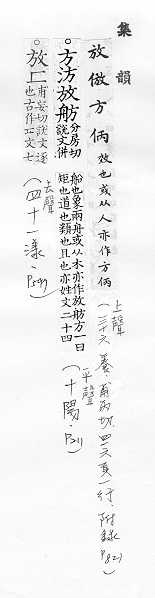 集韻
放倣方俩 效也或从人亦作方俩
(上聲 三十六養·甫兩切·四六頁一行·附錄P82)
。方汸放舫 分房切說文併
船也象兩舟或从木亦作放舫方一曰
矩也道也類也且也亦姓文二十四
平聲(十陽·P211)
。放匚 甫妄切說文逐
也古作匚文七
去聲(四十一漾·P599)